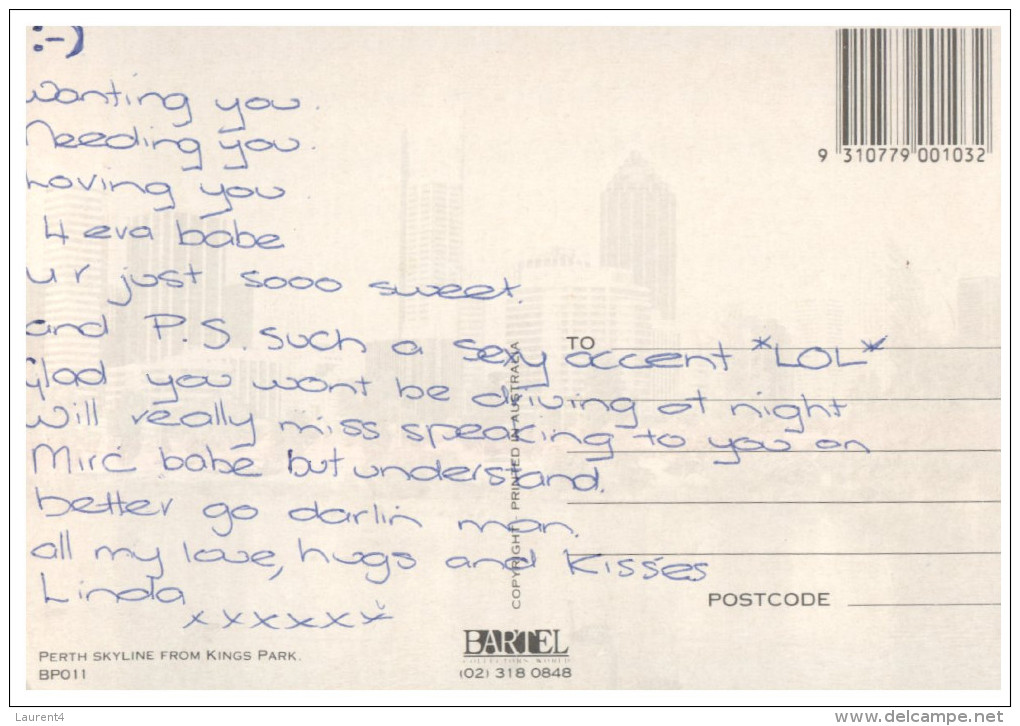 :-)
9 310779 001032
Wanting you.
Needing you.
Loving you
4 eva babe
ur just sooo sweet.
and P.S. such a sexy accent *LOL*
Glad you wont be driving at night
Will really miss speaking to you on
Mirc babe but understand.
better go darlin man.
all my love, hugs and kisses
Linda
xxxxxx
TO
POSTCODE
COPYRIGHT - PRINTED IN AUSTRALIA
PERTH SKYLINE FROM KINGS PARK.
BP011
BARTEL
COLLECTORS WORLD
(02) 318 0848
Laurent4
www.delcampe.net